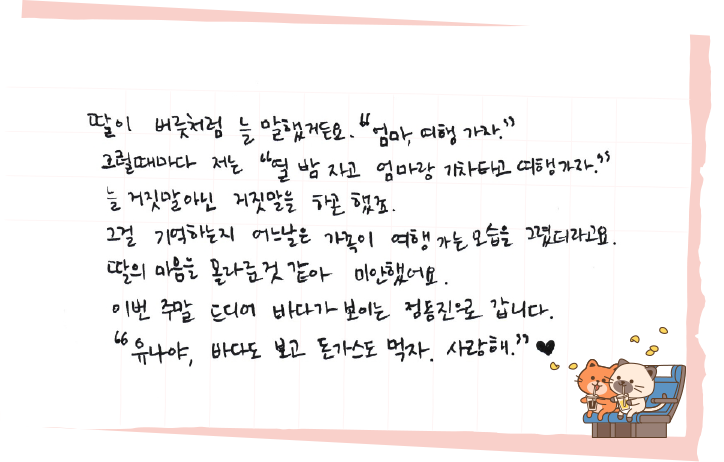 딸이 버릇처럼 늘 말했거든요. "엄마, 여행 가자."
그럴때마다 저는 "열 밤 자고 엄마랑 기차타고 여행가자."
늘 거짓말아닌 거짓말을 하곤 했죠.
그걸 기억하는지 어느날은 가족이 여행 가는 모습을 그렸더라고요.
딸의 마음을 몰라준것 같아 미안했네요.
이번 주말 드디어 바다가 보이는 정동진으로 갑니다.
"유나야, 바다도 보고 돈가스도 먹자. 사랑해." ♥